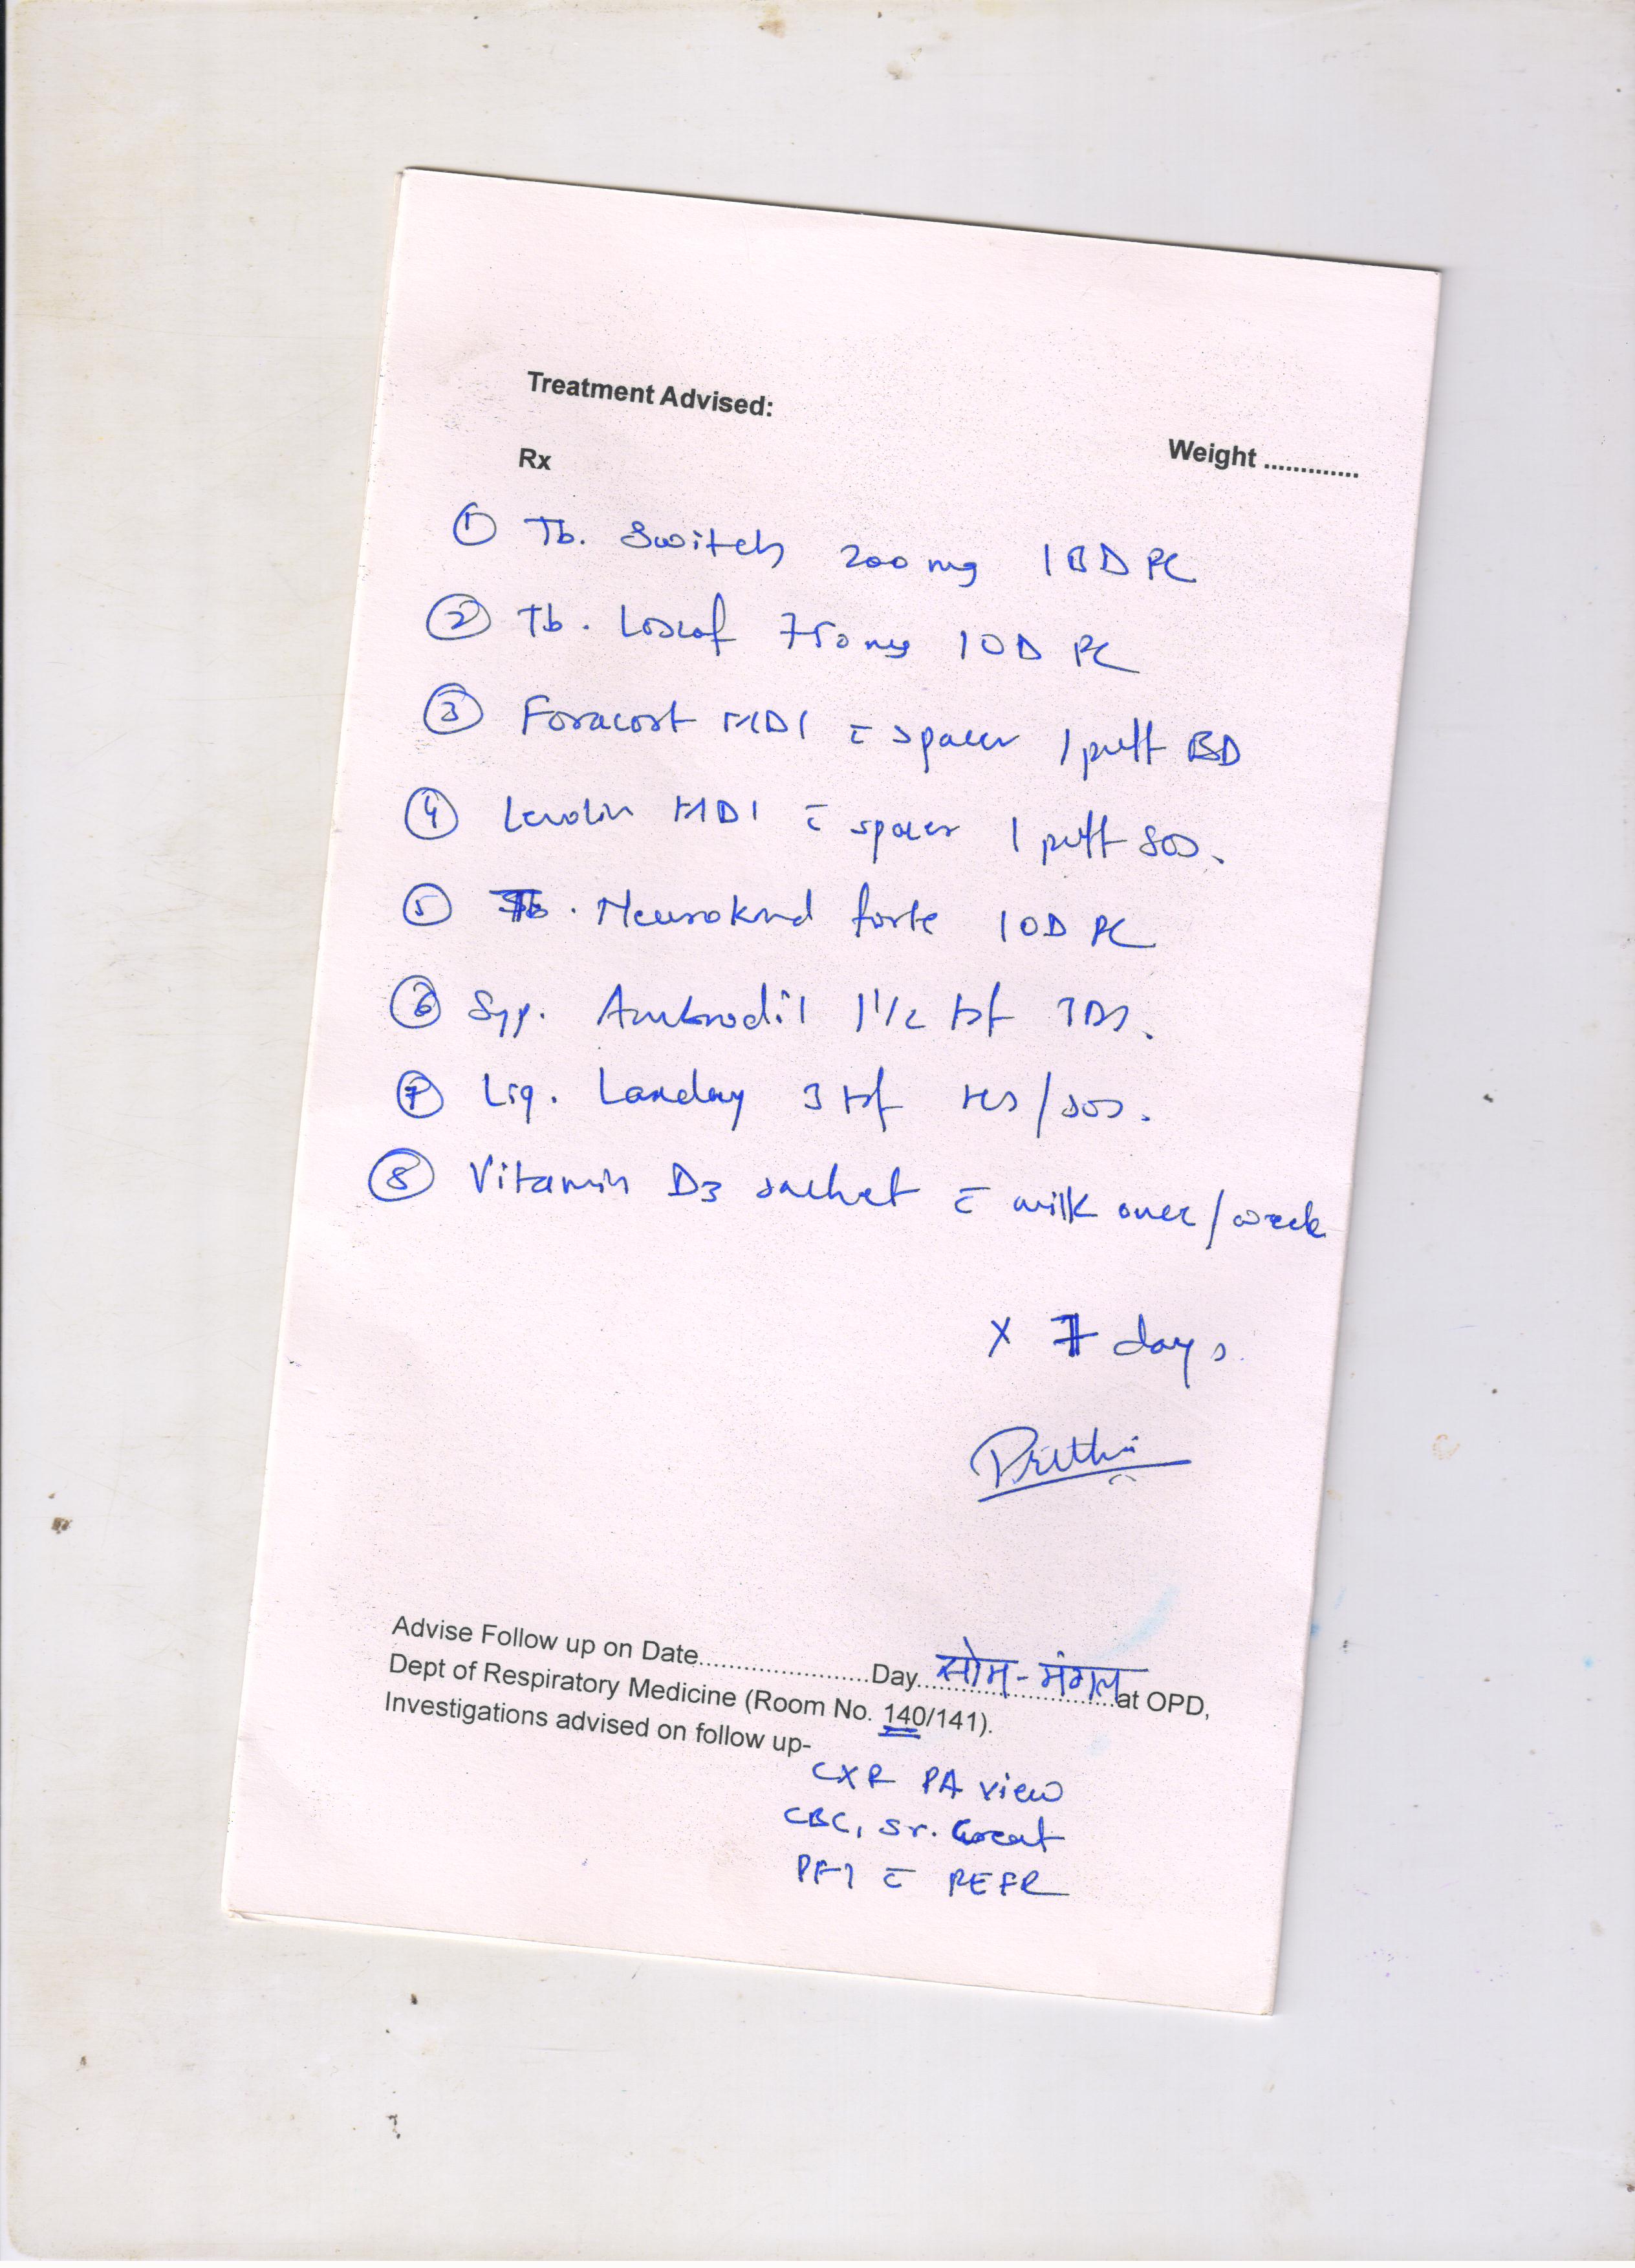 Treatment Advised:
Weight .............
Rx
① Tb. Switch 200 mg 1 BD PC
② Tb. 750 mg 1 OD PC
③ Foracort MDI c̄ spacer 1 puff BD
④ Levolin MDI c̄ spacer 1 puff SOS.
⑤ Tb. Neurokind forte 1 OD PC
⑥ Syp. Ambrodil 1 1/2 tsf TDS.
⑦ Liq. 3 tsf HS/SOS.
⑧ Vitamin D3 sachet c̄ milk once/week
X 7 days.
Advise Follow up on Date.......................Day सोम-मंगल at OPD,
Dept of Respiratory Medicine (Room No. 140/141).
Investigations advised on follow up-
CXR PA view
CBC, Sr. Creat
PFT c̄ PEFR